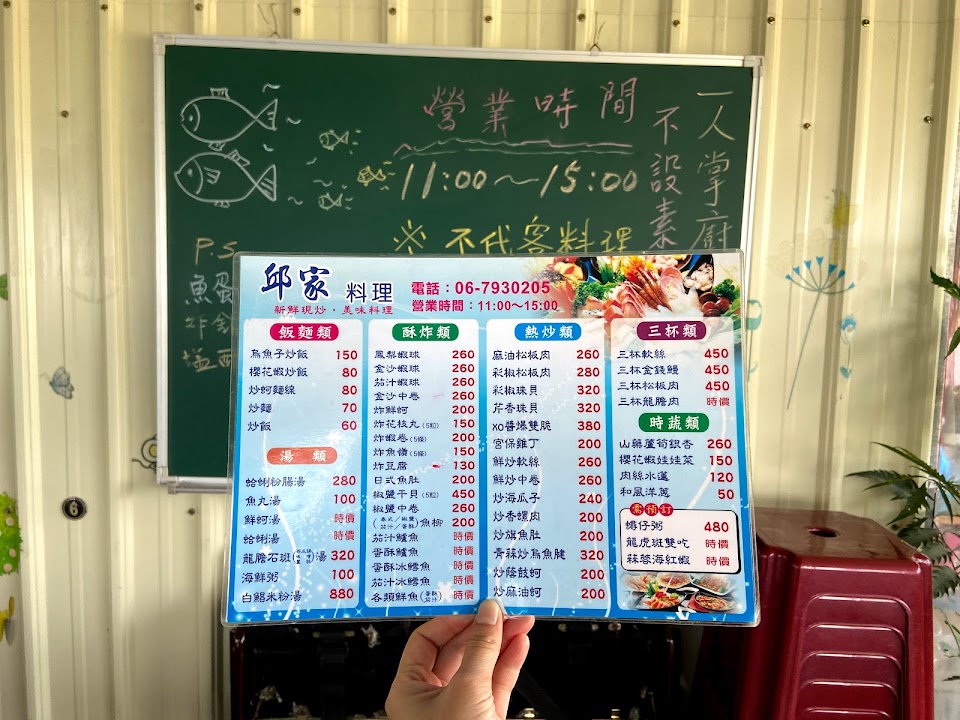 營業時間
11:00~15:00
※不代客料理
一人掌廚
不設素
P.S
邱家 料理
新鮮現炒·美味料理
電話：06-7930205
營業時間：11:00~15:00
飯麵類
烏魚子炒飯 150
櫻花蝦炒飯 80
炒蚵麵線 80
炒麵 70
炒飯 60
湯類
蛤蜊粉腸湯 280
魚丸湯 100
鮮蚵湯 時價
蛤蜊湯 時價
龍膽石斑湯 320
海鮮粥 100
白鯧米粉湯 880
酥炸類
鳳梨蝦球 260
金沙蝦球 260
茄汁蝦球 260
金沙中卷 260
炸鮮蚵 200
炸花枝丸(5粒) 150
炸蝦卷(5條) 200
炸魚嶺(5條) 150
炸豆腐 130
日式魚肚 200
椒鹽干貝(5粒) 450
椒鹽中卷 260
(泰式/椒鹽 茄汁/香酥)魚柳 200
茄汁鱸魚 時價
香酥鱸魚 時價
香酥冰鱈魚 時價
茄汁冰鱈魚 時價
各類鮮魚(香酥 茄汁) 時價
熱炒類
麻油松板肉 260
彩椒松板肉 280
彩椒珠貝 320
芹香珠貝 320
XO醬爆雙脆 380
宮保雞丁 200
鮮炒軟絲 260
鮮炒中卷 260
炒海瓜子 240
炒香螺肉 200
炒旗魚肚 200
青蒜炒烏魚腱 320
炒蔭鼓蚵 200
炒麻油蚵 200
三杯類
三杯軟絲 450
三杯金錢鰻 450
三杯松板肉 450
三杯龍膽肉 時價
時蔬類
山藥蘆筍銀杏 260
櫻花蝦娃娃菜 150
肉絲水蓮 120
和風洋蔥 50
需預訂
蟳仔粥 480
龍虎斑雙吃 時價
蒜蓉海紅蝦 時價
6